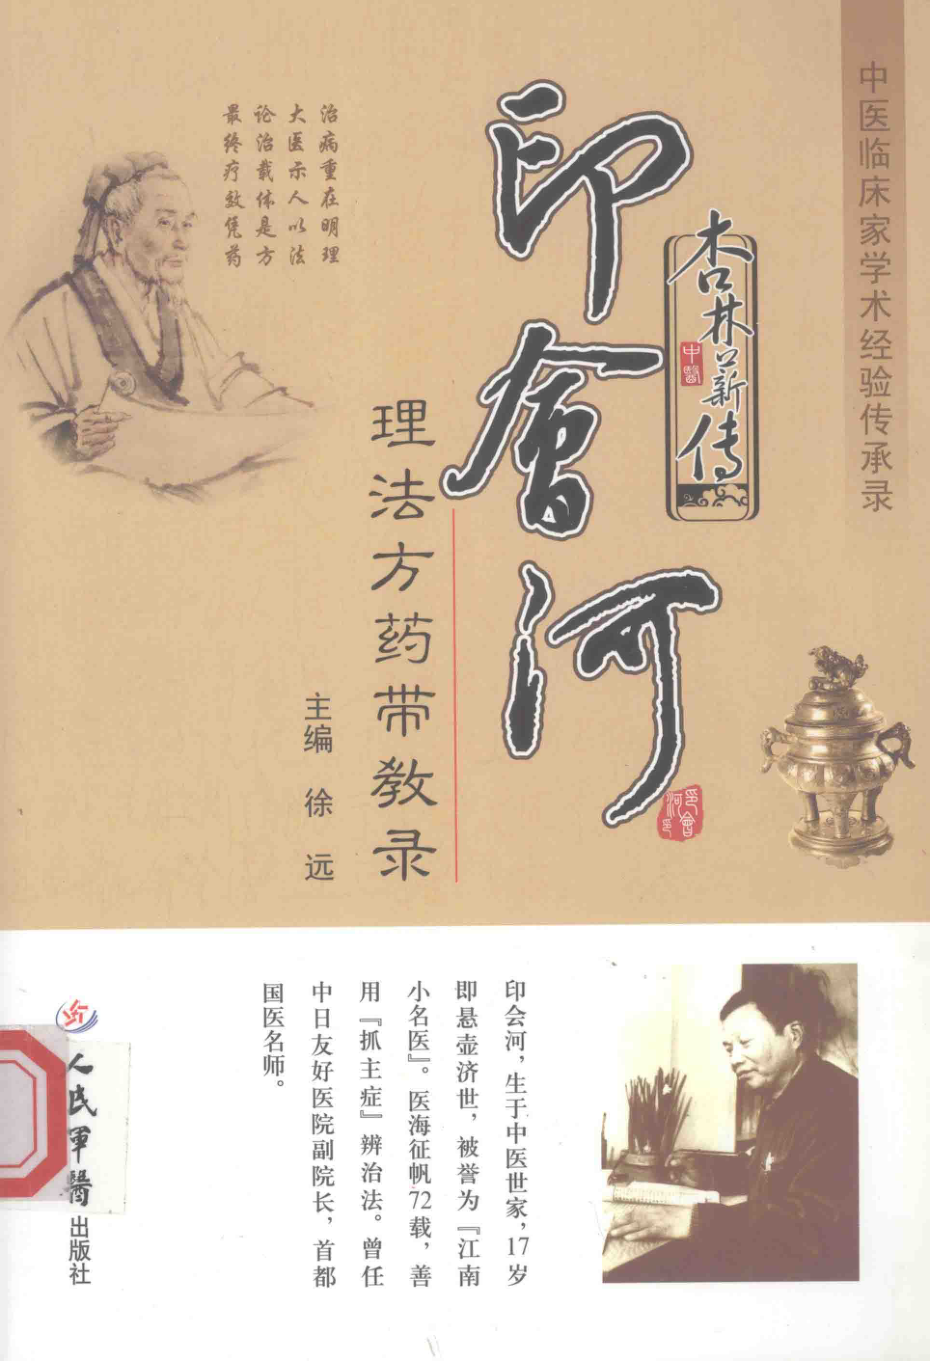 中医临床家学术经验传承录
杏林薪传
中醫
印會河
印會河印
理法方药带教录
主编 徐 远
治病重在明理
大医示人以法
论治载体是方
最终疗效凭药
印会河，生于中医世家，17岁
即悬壶济世，被誉为『江南
小名医』。医海征帆72载，善
用『抓主症』辨治法。曾任
中日友好医院副院长，首都
国医名师。
人民軍醫出版社